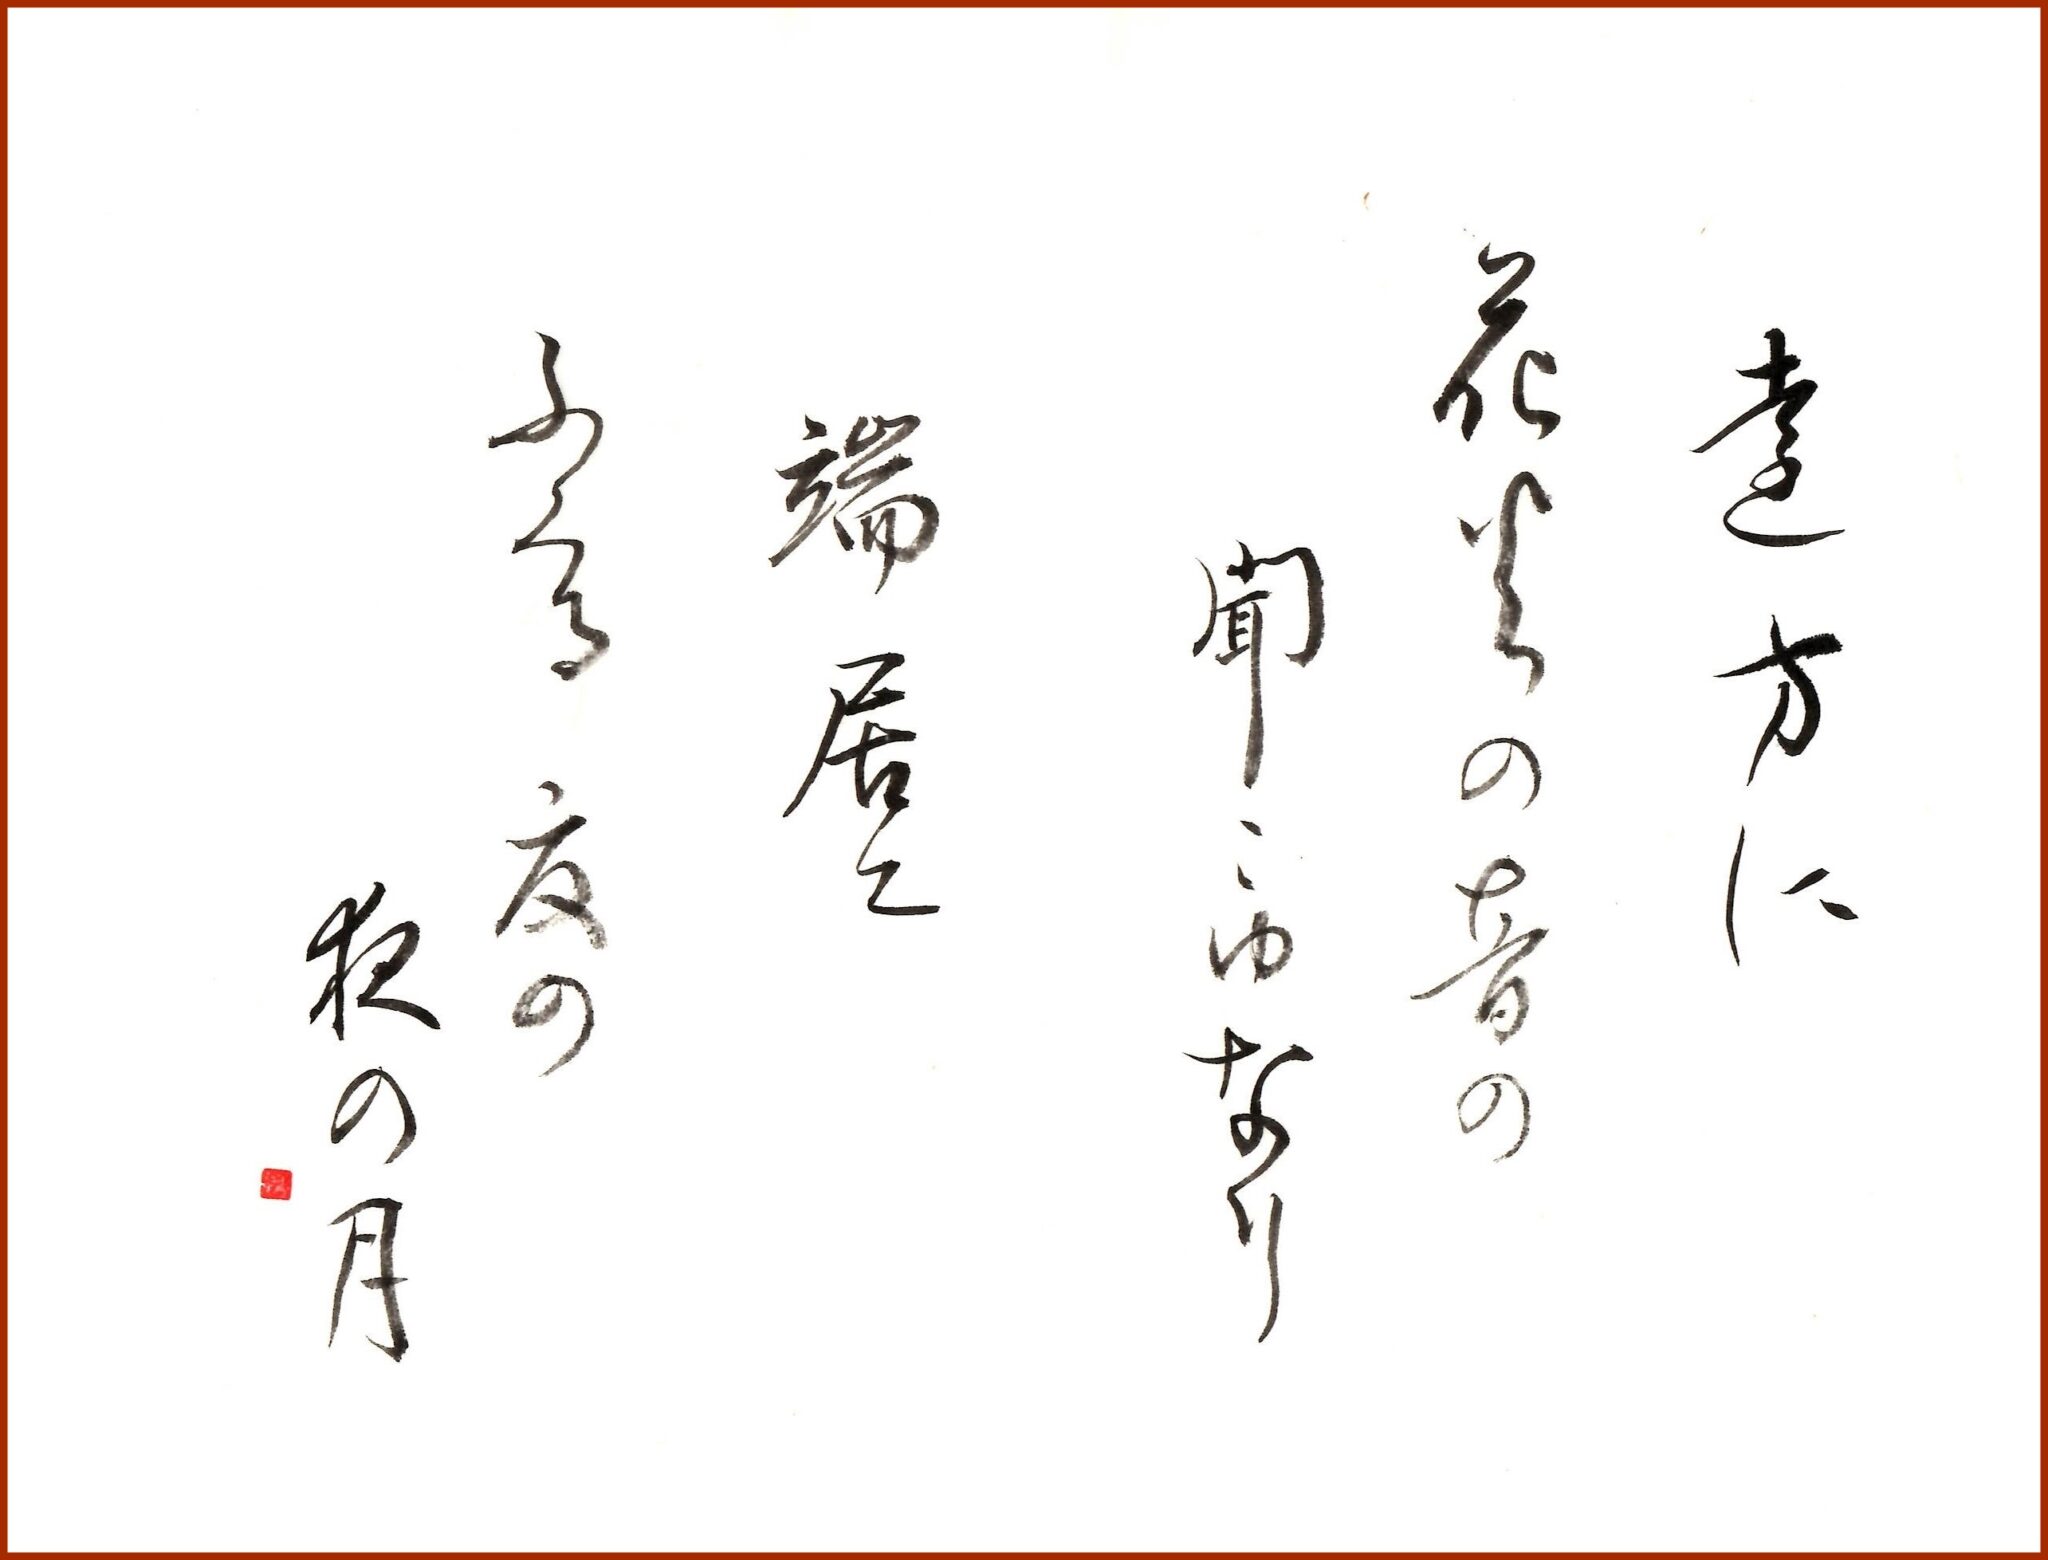 遠方に
花火の音の
聞こゆなり
端居に
ふくる夏の
夜の月